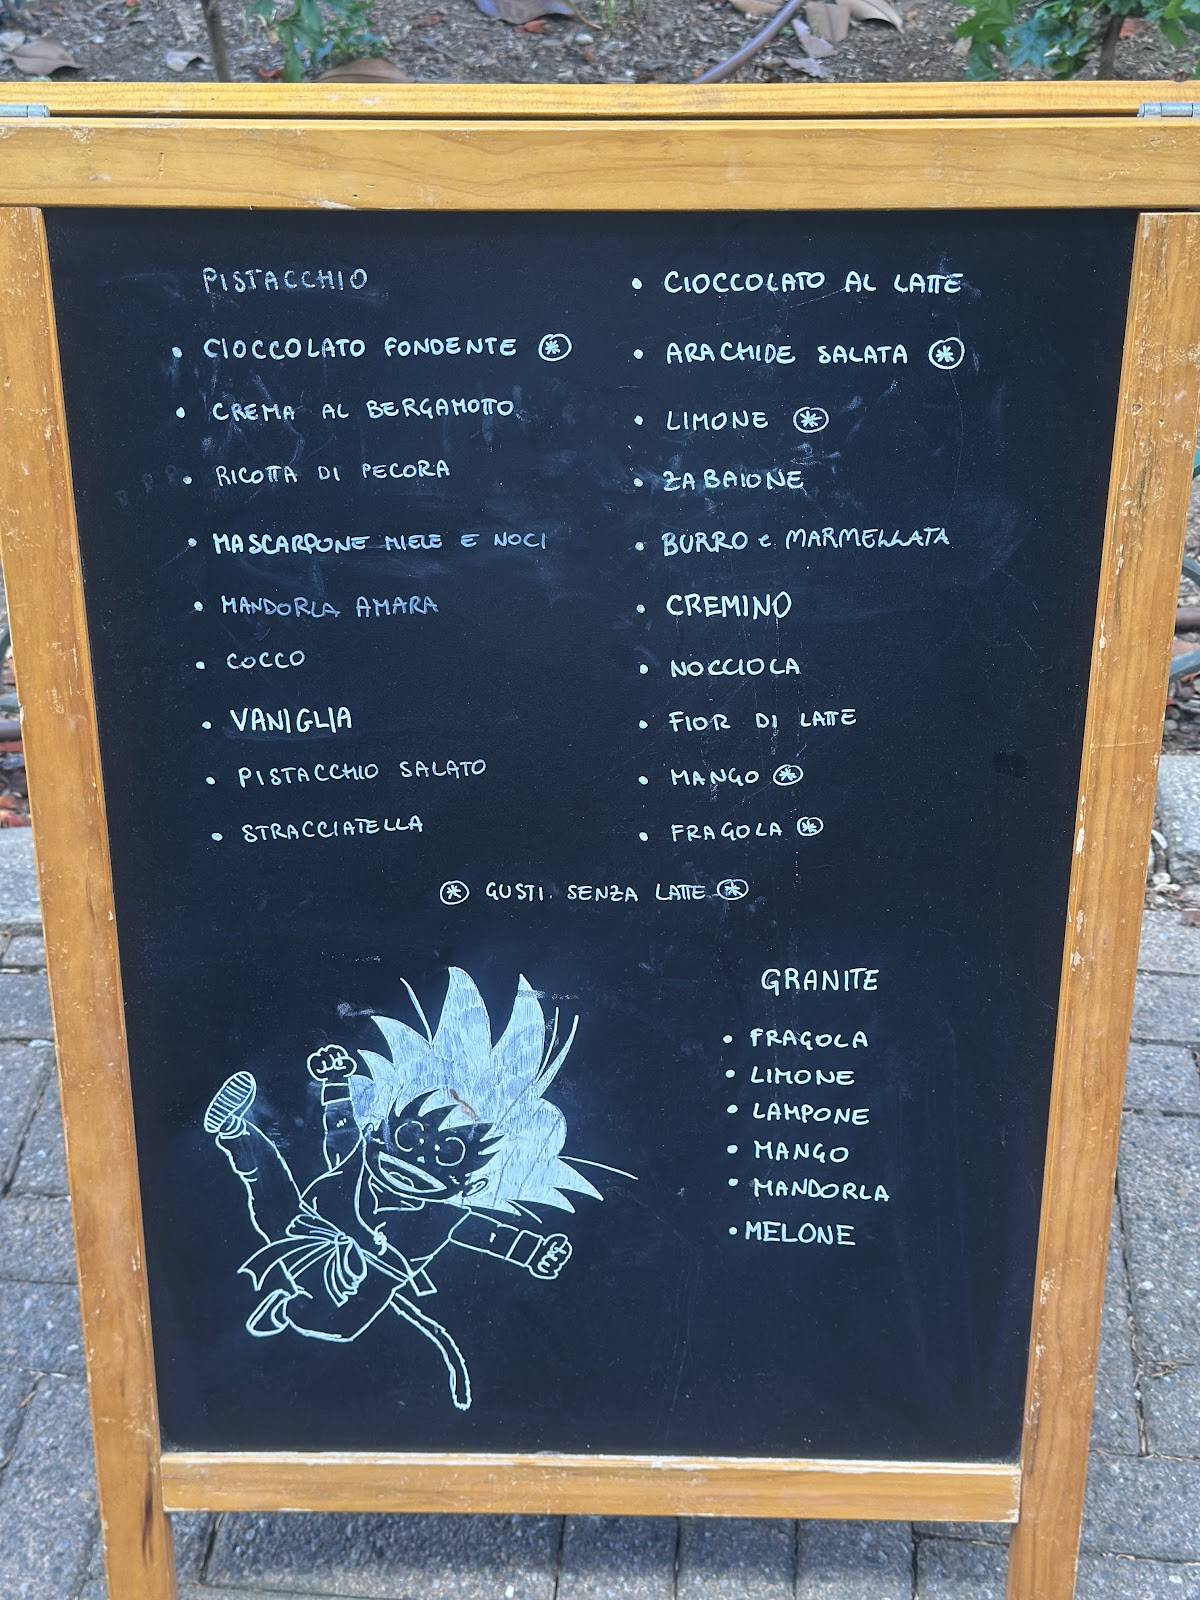 PISTACCHIO
• CIOCCOLATO FONDENTE ⊛
• CREMA AL BERGAMOTTO
• RICOTTA DI PECORA
• MASCARPONE MIELE E NOCI
• MANDORLA AMARA
• COCCO
• VANIGLIA
• PISTACCHIO SALATO
• STRACCIATELLA
• CIOCCOLATO AL LATTE
• ARACHIDE SALATA ⊛
• LIMONE ⊛
• ZABAIONE
• BURRO e MARMELLATA
• CREMINO
• NOCCIOLA
• FIOR DI LATTE
• MANGO ⊛
• FRAGOLA ⊛
⊛ GUSTI SENZA LATTE ⊛
GRANITE
• FRAGOLA
• LIMONE
• LAMPONE
• MANGO
• MANDORLA
• MELONE